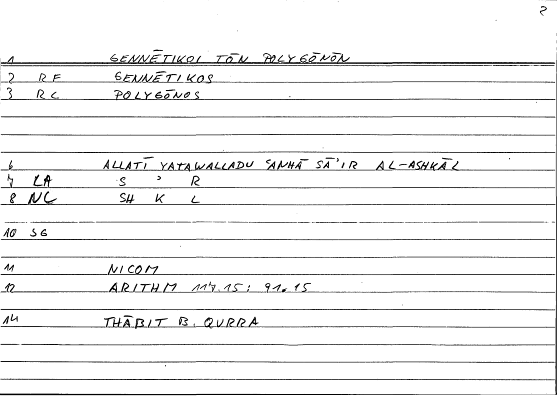 2
1 GENNĒTIKOI TŌN POLYGŌNŌN
2 RF GENNĒTIKOS
3 RC POLYGŌNOS
6 ALLATĪ YATAWALLADU ʿANHĀ SĀʾIR AL-ASHKĀL
7 LA S ʾ R
8 NC SH K L
10 SG
11 NICOM
12 ARITHM 114.15; 91.15
14 THĀBIT B. QURRA